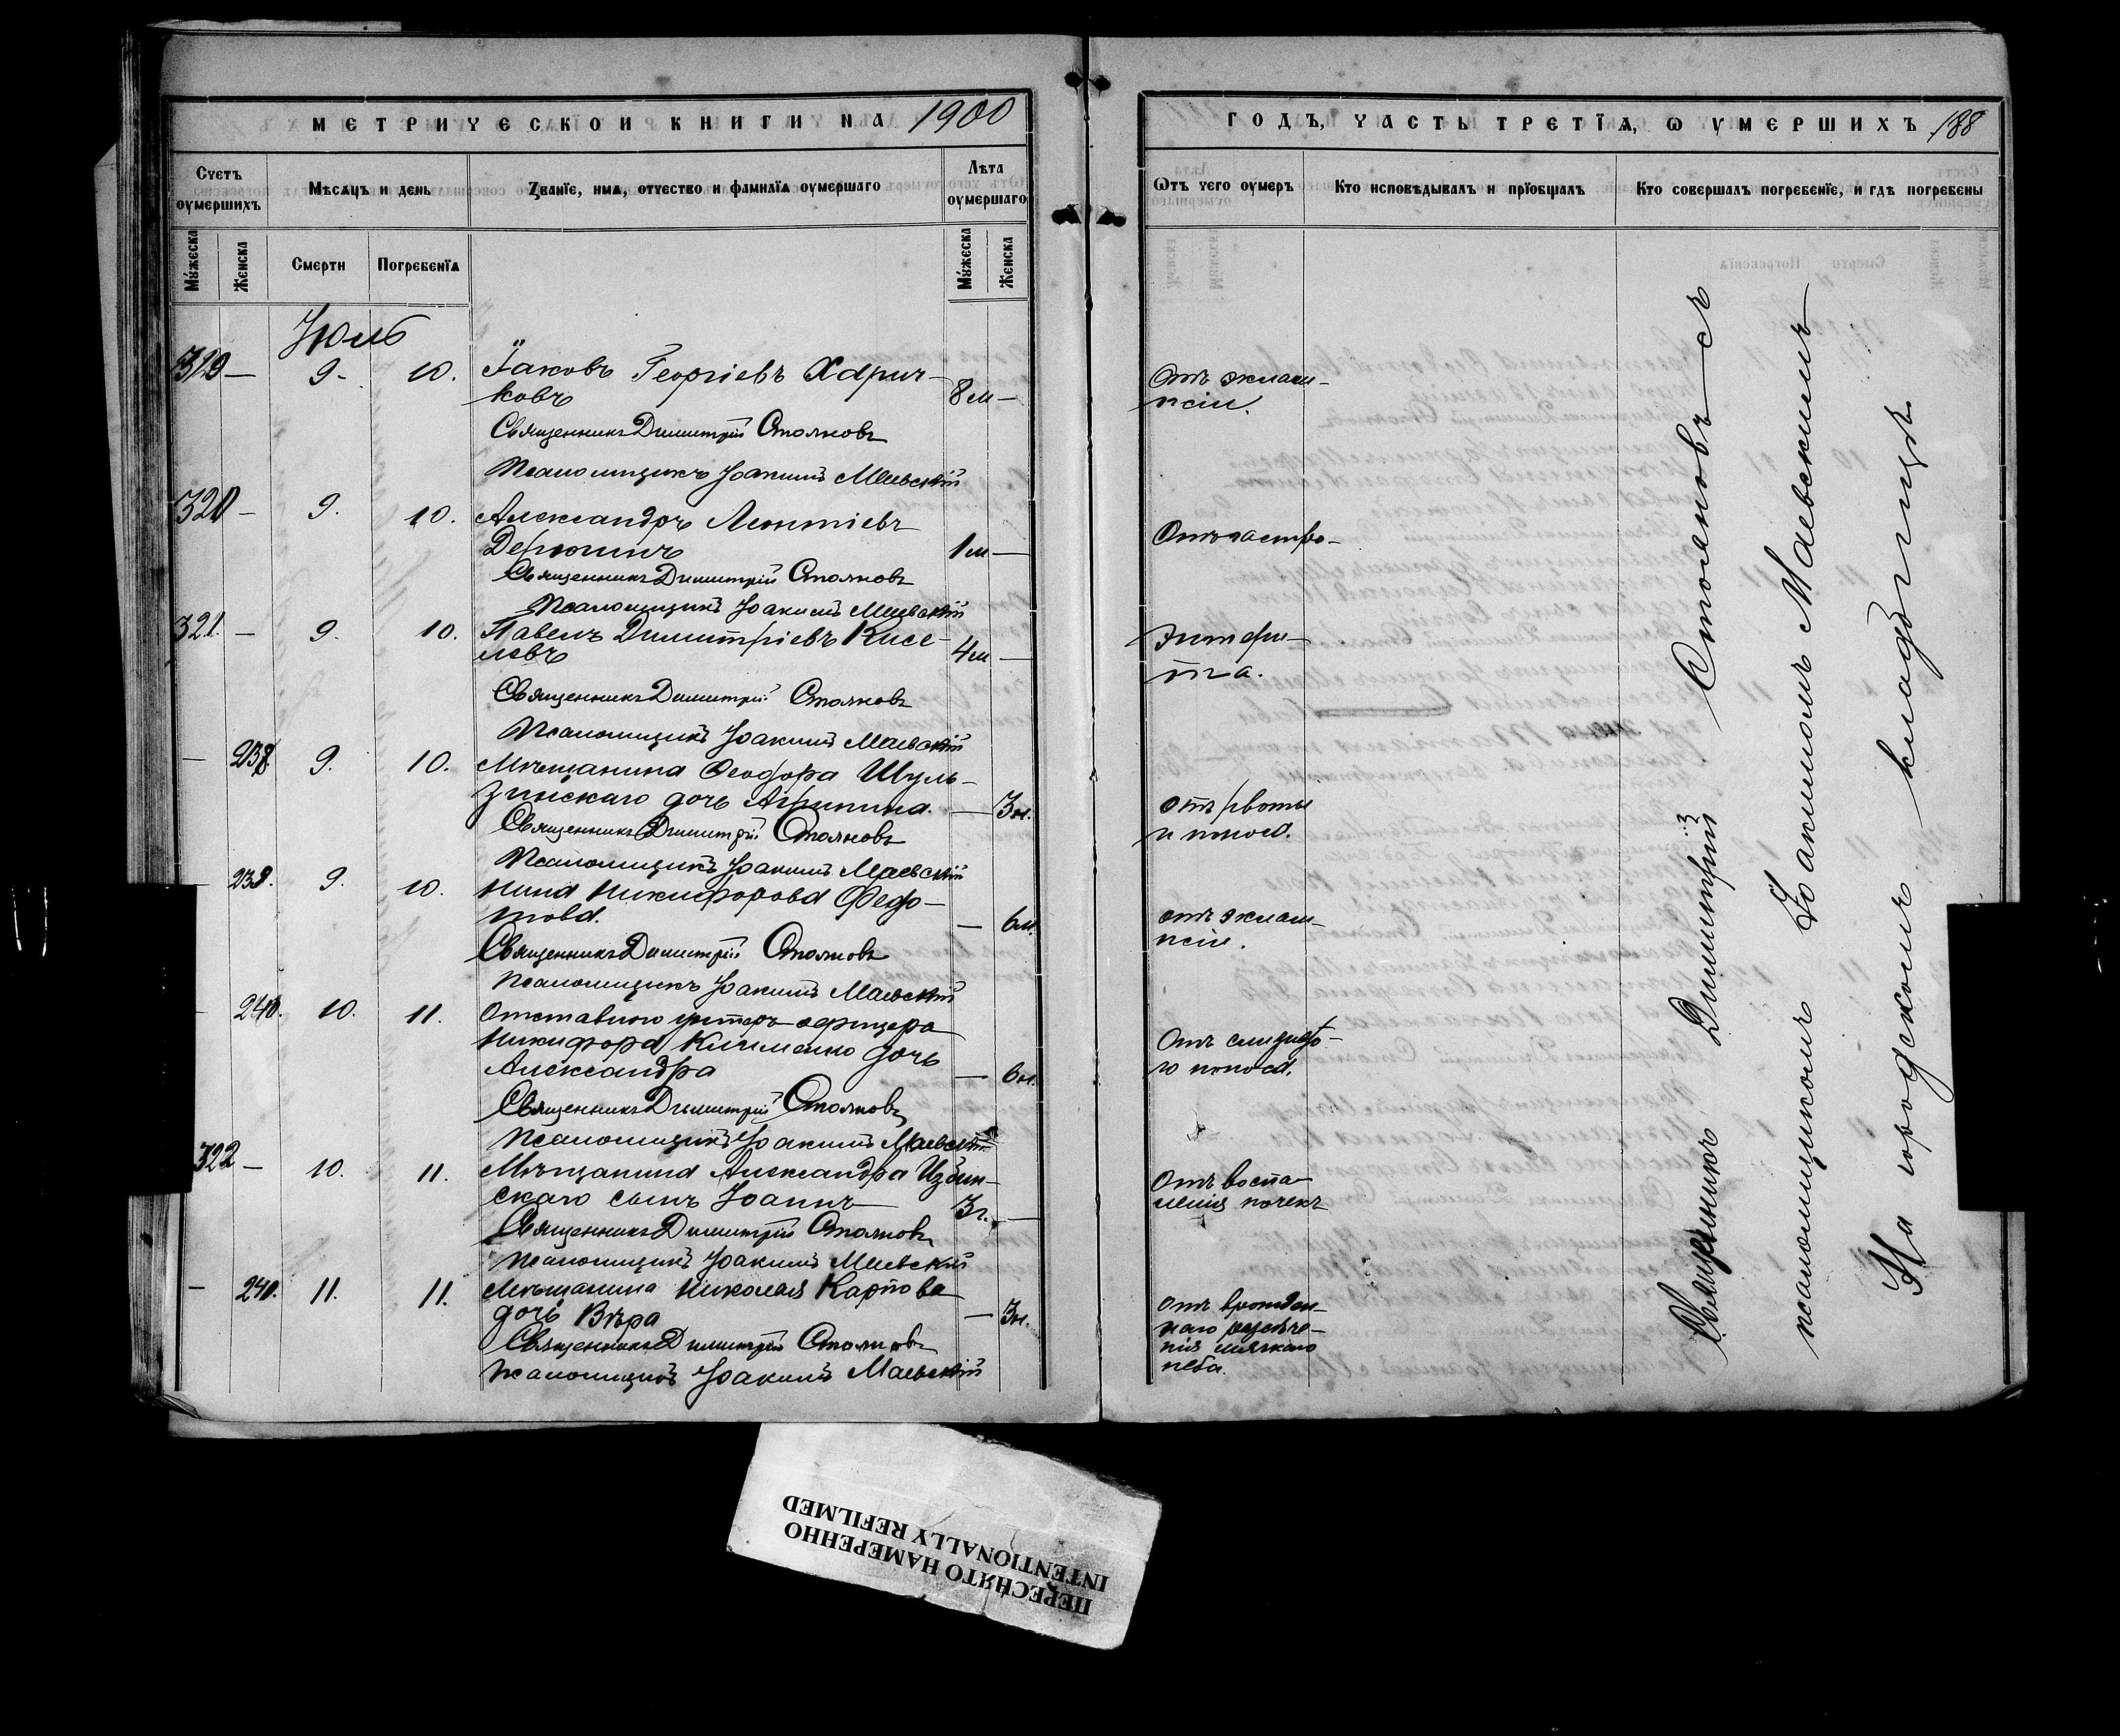 МЕТРИЧЕСКОЙ КНИГИ НА 1900
Счетъ оумершихъ
Мѣсяцъ и день
Званїе, имя, отчество и фамилїя оумершаго
Лѣта оумершаго
Мꙋжеска
Женска
Смерти
Погребенїя
Мꙋжеска
Женска
Іюль
319 — 9 - 10. Іаковъ Георгіевъ Харич-
ковъ 8 м —
Священникъ Димитрій Стояновъ
Псаломщикъ Іоакимъ Маевскій
320 — 9. 10. Александръ Леонтіевъ
Дерюгинъ 1 м —
Священникъ Димитрій Стояновъ
Псаломщикъ Іоакимъ Маевскій
321. — 9. 10. Павелъ Димитріевъ Кисе-
левъ 4 м —
Священникъ Димитрій Стояновъ
Псаломщикъ Іоакимъ Маевскій
— 238 9. 10. Мѣщанина Ѳеодора Шуль-
зинскаго дочь Агрипина. — 3 м.
Священникъ Димитрій Стояновъ
Псаломщикъ Іоакимъ Маевскій
9. 10. Нина Никифорова Федо-
това. — 6 м.
Священникъ Димитрій Стояновъ
Псаломщикъ Іоакимъ Маевскій
- 240. 10. 11. Отставного унтеръ-офицера
Никифора Клименко дочь
Александра — 6 м.
Священникъ Димитрій Стояновъ
Псаломщикъ Іоакимъ Маевскій
322 — 10. 11. Мѣщанина Александра Избин-
скаго сынъ Іоаннъ 3 г. —
Священникъ Димитрій Стояновъ
Псаломщикъ Іоакимъ Маевскій
— 11. 11. Мѣщанина Николая Карпова
дочь Вѣра — 3 м.
Священникъ Димитрій Стояновъ
Псаломщикъ Іоакимъ Маевскій
ГОДЪ, ЧАСТЬ ТРЕТЇЯ, Ѡ ОУМЕРШИХЪ 188
Ѿтъ чего оумеръ
Кто исповѣдывалъ и прїобщалъ
Кто совершалъ погребенїе, и гдѣ погребены
Отъ эклам-
псіи.
Отъ гастро-
Энтери-
та.
Отъ рвоты
и поноса.
отъ эклам-
псіи.
Отъ слизисто-
го поноса.
Отъ воспа-
ленія почекъ
отъ врожден-
наго разсѣче-
нія мягкаго
неба.
Священникъ Димитрій Стояновъ съ
псаломщикомъ Іоакимомъ Маевскимъ
На городскомъ кладбищѣ.
ПЕРЕСНЯТО НАМЕРЕННО
INTENTIONALLY REFILMED